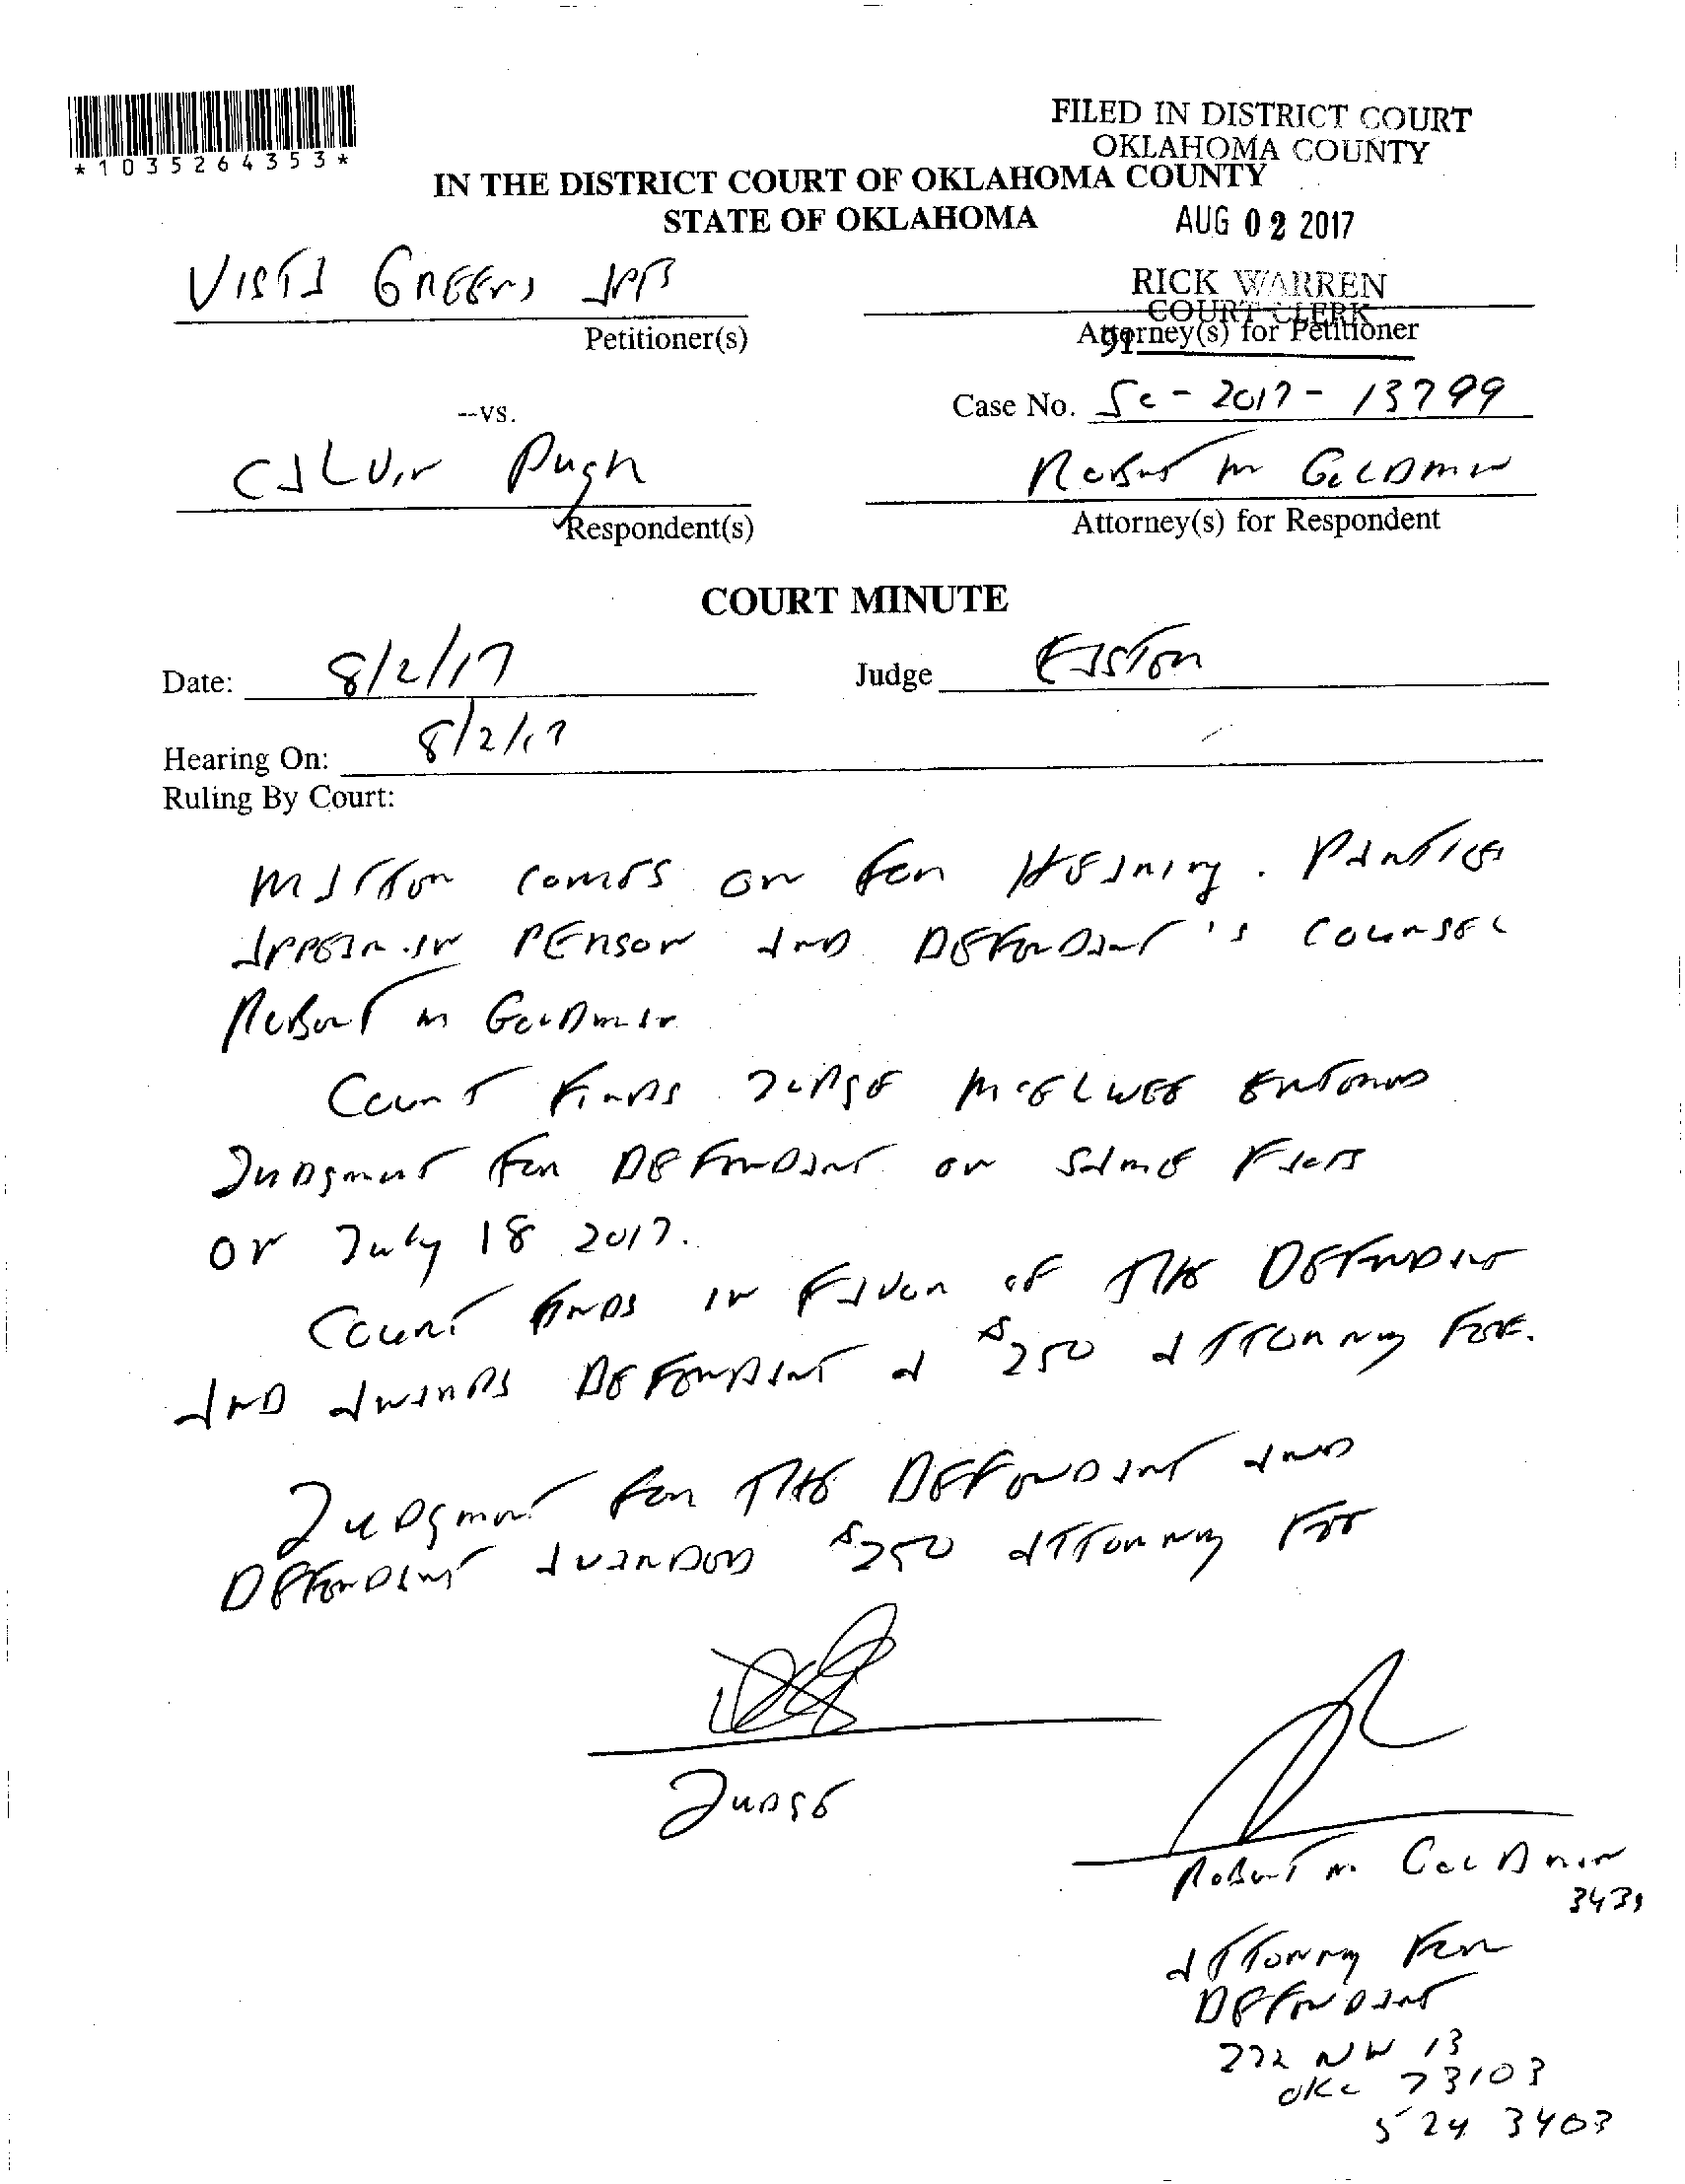 *1035264353*
FILED IN DISTRICT COURT
OKLAHOMA COUNTY
IN THE DISTRICT COURT OF OKLAHOMA COUNTY
STATE OF OKLAHOMA
AUG 02 2017
VISTA GREENS APTS
RICK WARREN
COURT CLERK
Petitioner(s)
Attorney(s) for Petitioner
91
--vs.
Case No. SC-2017-13799
CALVIN Pugh
ROBERT M GOLDMAN
Respondent(s)
Attorney(s) for Respondent
COURT MINUTE
Date: 8/2/17
Judge EASTON
Hearing On: 8/2/17
Ruling By Court:
MATTER COMES ON FOR HEARING. PARTIES
APPEAR IN PERSON AND DEFENDANT'S COUNSEL
ROBERT M GOLDMAN
COURT FINDS JUDGE MCELWEE ENTERED
JUDGMENT FOR DEFENDANT ON SAME FACTS
ON July 18 2017.
COURT FINDS IN FAVOR OF THE DEFENDANT
AND AWARDS DEFENDANT A $250 ATTORNEY FEE.
JUDGMENT FOR THE DEFENDANT AND
DEFENDANT AWARDED $250 ATTORNEY FEE
JUDGE
ROBERT M. GOLDMAN
3439
ATTORNEY FOR
DEFENDANT
222 NW 13
OKC 73103
524 3403